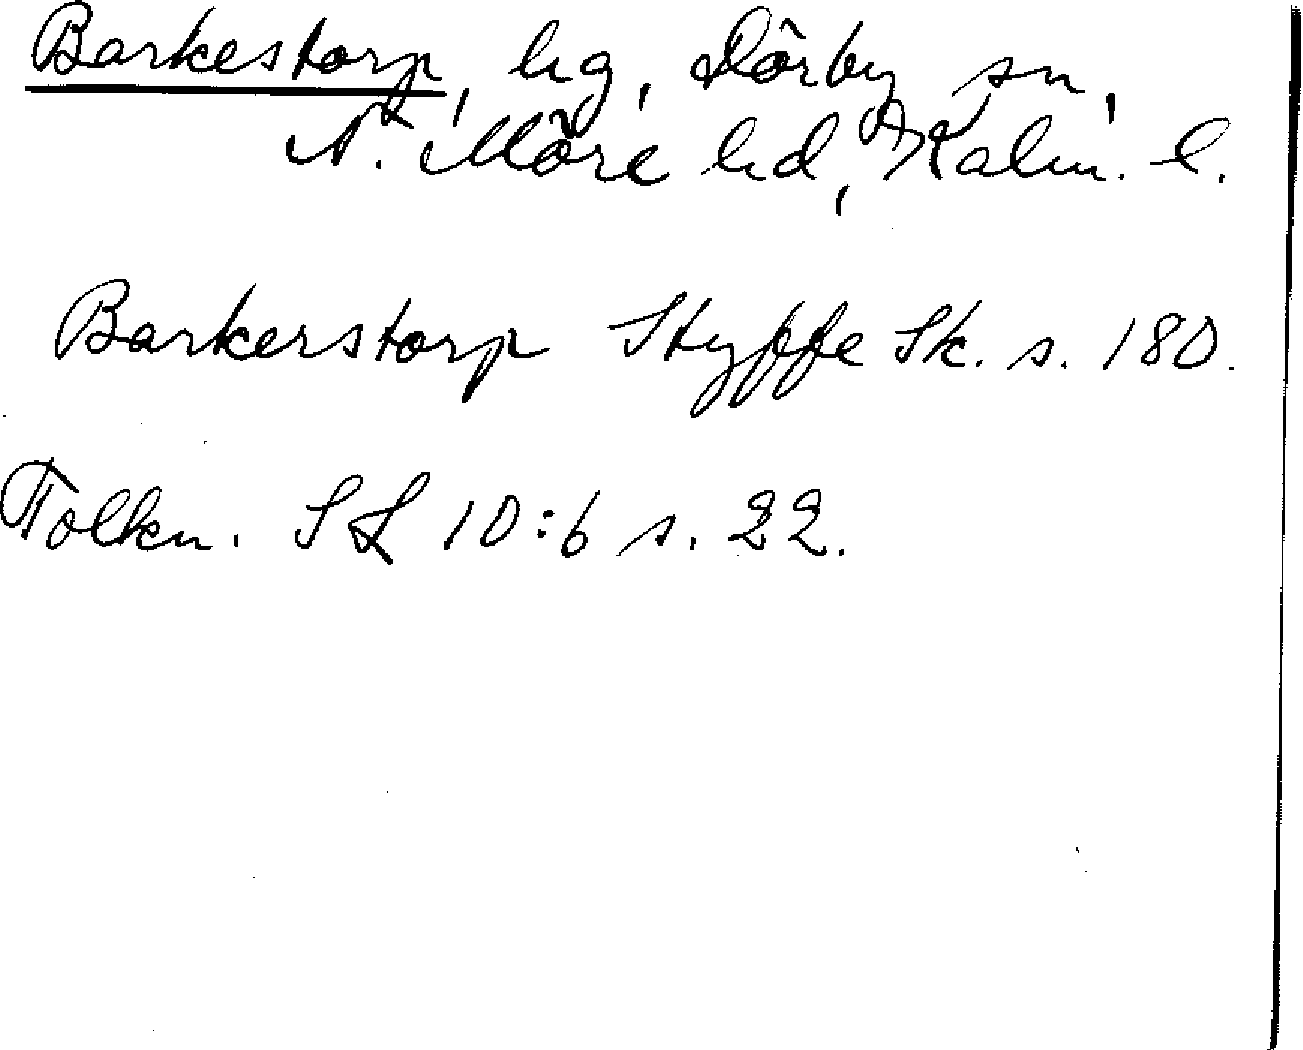 Barkestorp, hg, Dörby sn,
N. Möre hd, Kalm. l.
Barkerstorp Styffe Sk. s. 180.
Folkn. SL 10:6 s. 22.